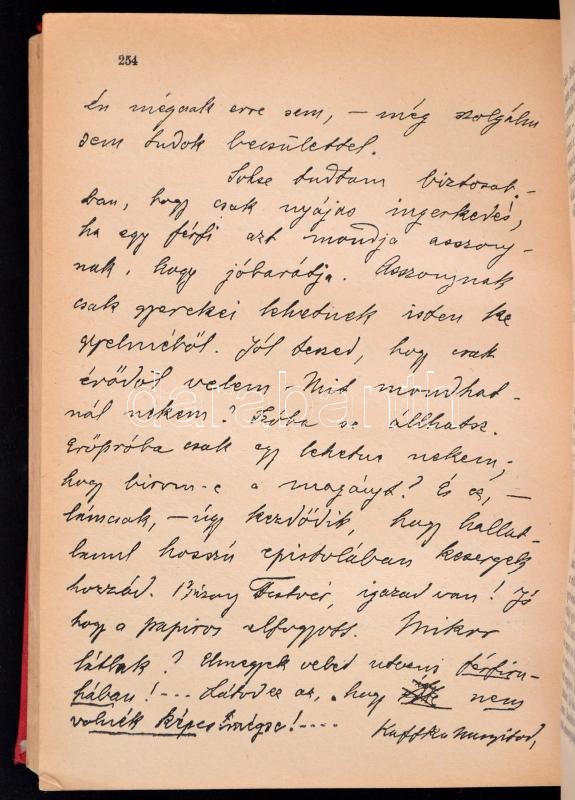 254
Én mégcsak erre sem, — még szolgálni
sem tudok becsülettel.
Sohse tudtam biztosab-
ban, hogy csak nyájas ingerkedés,
ha egy férfi azt mondja asszony-
nak, hogy jóbarátja. Asszonynak
csak gyerekei lehetnek isten ke
gyelméből. Jól teszed, hogy csak
évődöl velem. Mit mondhat-
nál nekem? Szóba se állhatsz.
Erőpróba csak egy lehetne nekem;
hogy birom-e a magányt? És ez, —
lámcsak, — úgy kezdődik, hogy hallat-
lanul hosszú epistolában kesergek
hozzád. Bizony Testvér, igazad van! Jó
hogy a papiros elfogyott. Mikor
látlak? Elmegyek veled utazni férfiru-
hában! --- Látod ez az, hogy nem
volnék képes mégse! ----
Kaffka Margitod,
darabanth